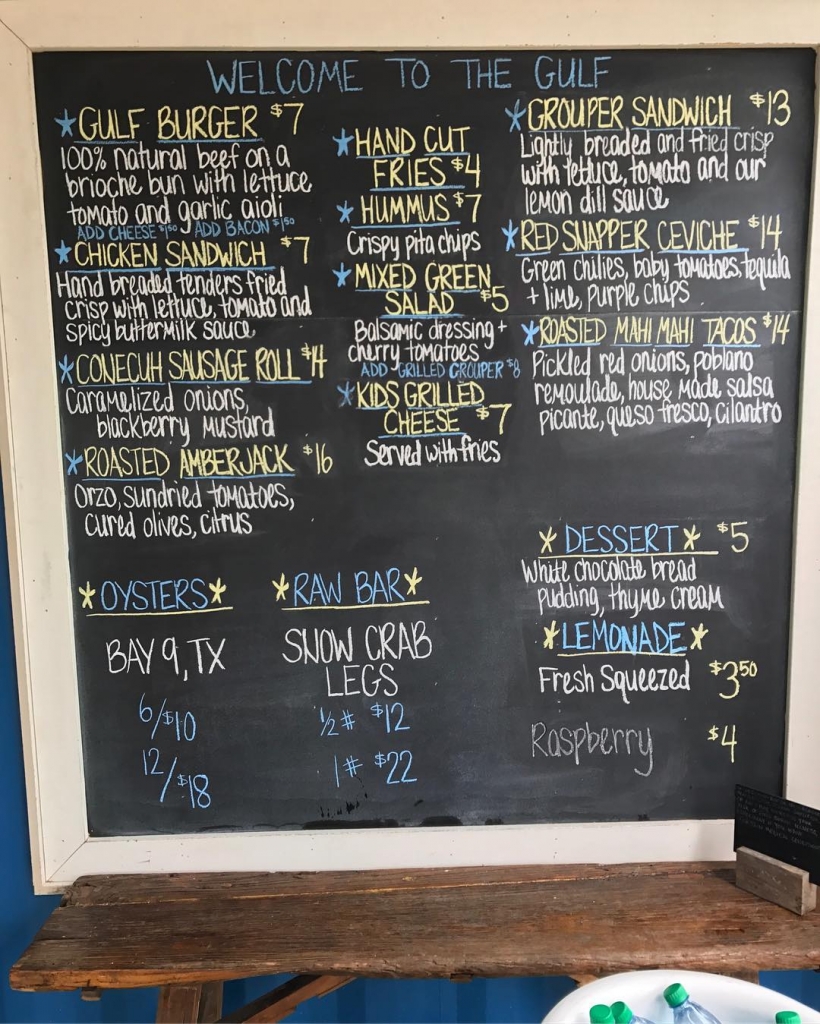 WELCOME TO THE GULF
*GULF BURGER $7
100% natural beef on a
brioche bun with lettuce
tomato and garlic aioli
ADD CHEESE $1.50 ADD BACON $1.50
*CHICKEN SANDWICH $7
Hand breaded tenders fried
crisp with lettuce, tomato and
spicy buttermilk sauce
*CONECUH SAUSAGE ROLL $14
Caramelized onions,
blackberry mustard
*ROASTED AMBERJACK $16
Orzo, sundried tomatoes,
cured olives, citrus
*HAND CUT
FRIES $4
*HUMMUS $7
Crispy pita chips
*MIXED GREEN
SALAD $5
Balsamic dressing +
cherry tomatoes
ADD GRILLED GROUPER $8
*KIDS GRILLED
CHEESE $7
Served with fries
*GROUPER SANDWICH $13
Lightly breaded and fried crisp
with lettuce, tomato and our
lemon dill sauce
*RED SNAPPER CEVICHE $14
Green chilies, baby tomatoes, tequila
+ lime, purple chips
*ROASTED MAHI MAHI TACOS $14
Pickled red onions, poblano
remoulade, house made salsa
picante, queso fresco, cilantro
*OYSTERS*
BAY 9, TX
6/$10
12/$18
*RAW BAR*
SNOW CRAB
LEGS
½ # $12
1 # $22
*DESSERT* $5
White chocolate bread
pudding, thyme cream
*LEMONADE*
Fresh Squeezed $3.50
Raspberry $4